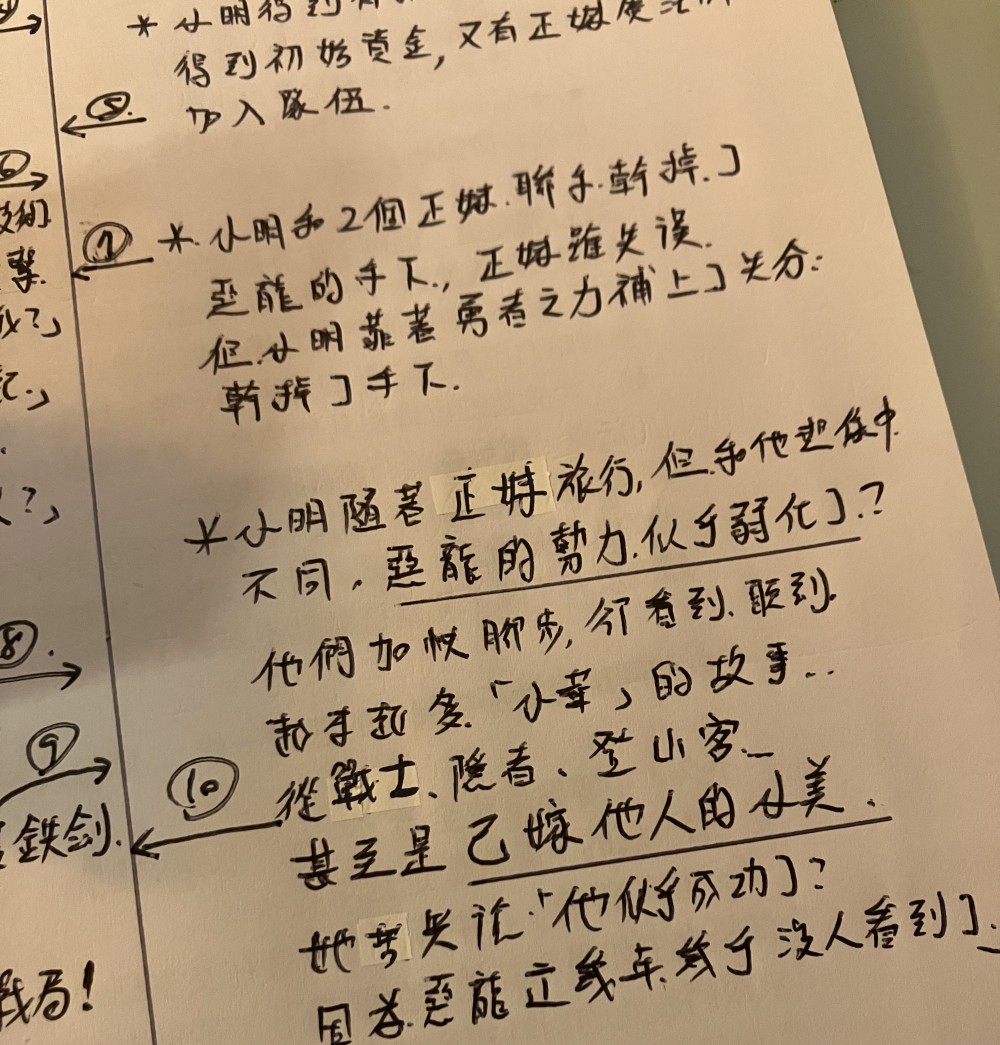 * 小明得到
得到初始資金,又有正妹魔法師
加入隊伍.
⑤
⑦
* 小明和2個正妹.聯手.幹掉了
惡龍的手下.,正妹雖失誤.
但.小明靠著勇者之力補上了失分:
幹掉了手下.
* 小明隨著正妹旅行,但和他想像中
不同,惡龍的勢力.似乎弱化了.?
他們加快腳步,卻看到.聽到.
越來越多.「小華」的故事...
從戰士、隱者、登山客...
甚至是已嫁他人的小美.
她苦笑說.「他似乎成功了?
因為.惡龍立線.幾乎沒人看到了.
⑧.
⑨
⑩
鉄剑.
戰局!